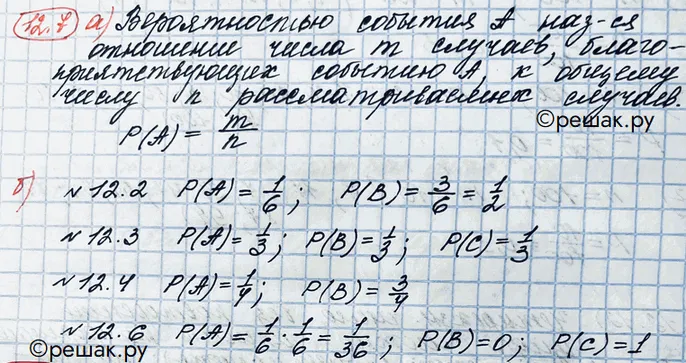 12.7 а) Вероятностью события А наз-ся
отношение числа m случаев, благо-
приятствующих событию А, к общему
числу n рассматриваемых случаев.
P(A) = m/n
©решак.ру
б)
№12.2 P(A) = 1/6; P(B) = 3/6 = 1/2
№12.3 P(A) = 1/3; P(B) = 1/3; P(C) = 1/3
№12.4 P(A) = 1/4; P(B) = 3/4
№12.6 P(A) = 1/6 · 1/6 = 1/36; P(B) = 0; P(C) = 1
©решак.ру